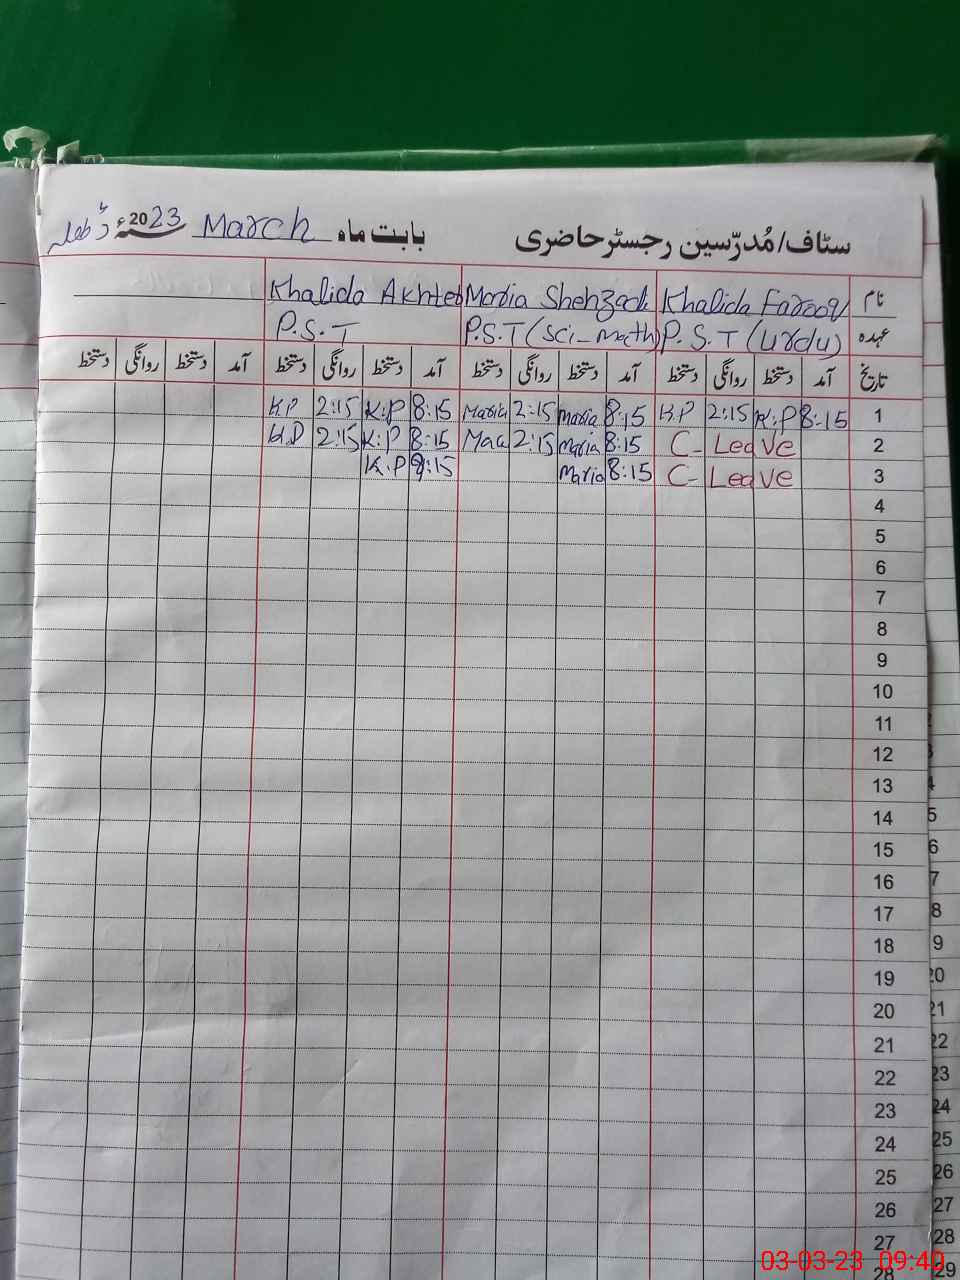 سٹاف/مُدرّسین رجسٹر حاضری بابت ماہ March 2023ء
نام Khalida Farooq Maria Shehzadi Khalida Akhter
عہدہ P.S.T (Urdu) P.S.T (Sci-math) P.S.T
تاریخ آمد دستخط روانگی دستخط آمد دستخط روانگی دستخط آمد دستخط روانگی دستخط آمد دستخط روانگی دستخط
1 8:15 K.P 2:15 K.P 8:15 Maria 2:15 Maria 8:15 K.P 2:15 K.P
2 C-Leave 8:15 Maria 2:15 8:15 K.P 2:15 K.P
3 C-Leave 8:15 Maria 8:15 K.P
4
5
6
7
8
9
10
11
12
13
14
15
16
17
18
19
20
21
22
23
24
25
26
27
28
5
6
7
8
9
20
21
22
23
24
25
26
27
28
29
03-03-23 09:40